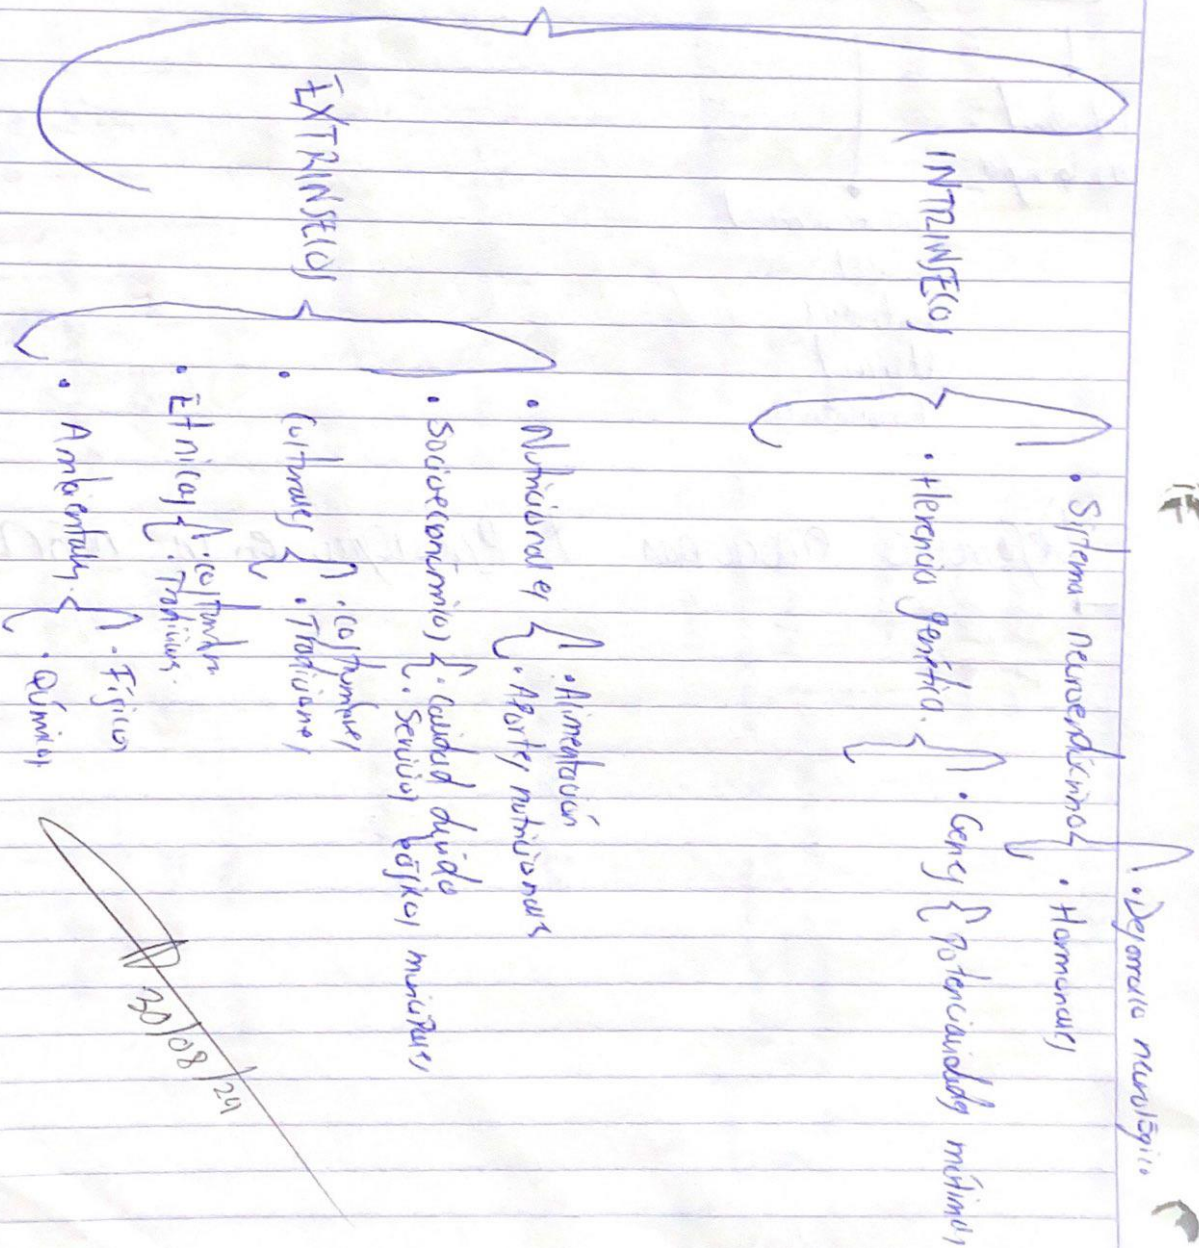 INTRINSECOS
• Sistema neuroendocrino
• Desarrollo neurológico
• Hormonales
• Herencia genética.
• Genes { Potencialidades máximas
EXTRINSECOS
• Nutricionales
• Alimentación
• Aportes nutricionales
• Socioeconómicos
• Calidad de vida
• Servicios básicos municipales
• Culturales
• Costumbres
• Tradiciones
• Étnicos
• Costumbres
• Tradiciones.
• Ambientales.
• Físicos
• Químicos.
30/08/24